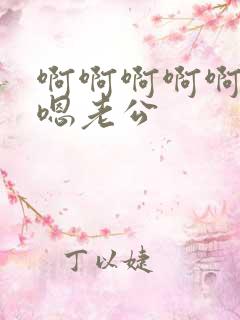 啊啊啊啊啊
嗯老公
丁以婕